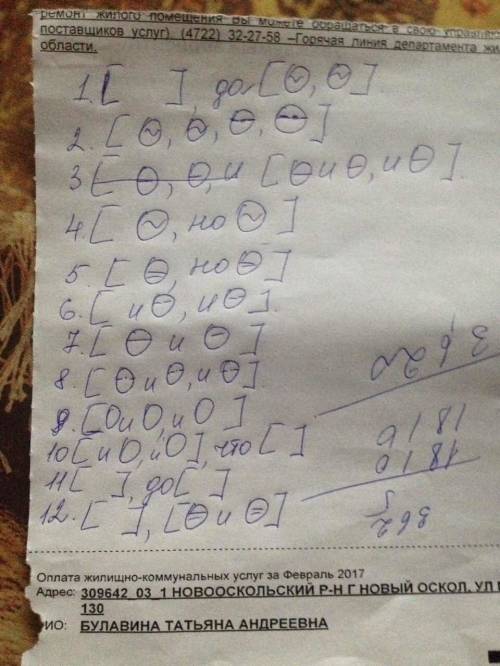 ремонт жилого помещения Вы можете обращаться в свою
поставщиков услуг). (4722) 32-27-58 –Горячая линия департамента
области.
1. [ ], да [⊖, ⊖].
2. [⊖, ⊖, ⊖, ⊖]
3 [⊖, ⊖, и [⊖ и ⊖, и ⊖].
4. [⊖, но ⊖]
5. [⊖, но ⊖]
6. [и ⊖, и ⊖].
7. [⊖ и ⊖]
8. [⊖ и ⊖, и ⊖]
9. [О и О, и О]
10 [и О, и О], что [ ]
11 [ ], до [ ]
12. [ ], [⊖ и ⊖]
3620
1810
1810
362
Оплата жилищно-коммунальных услуг за Февраль 2017
Адрес: 309642_03_1 НОВООСКОЛЬСКИЙ Р-Н Г НОВЫЙ ОСКОЛ, УЛ
130
ИО: БУЛАВИНА ТАТЬЯНА АНДРЕЕВНА